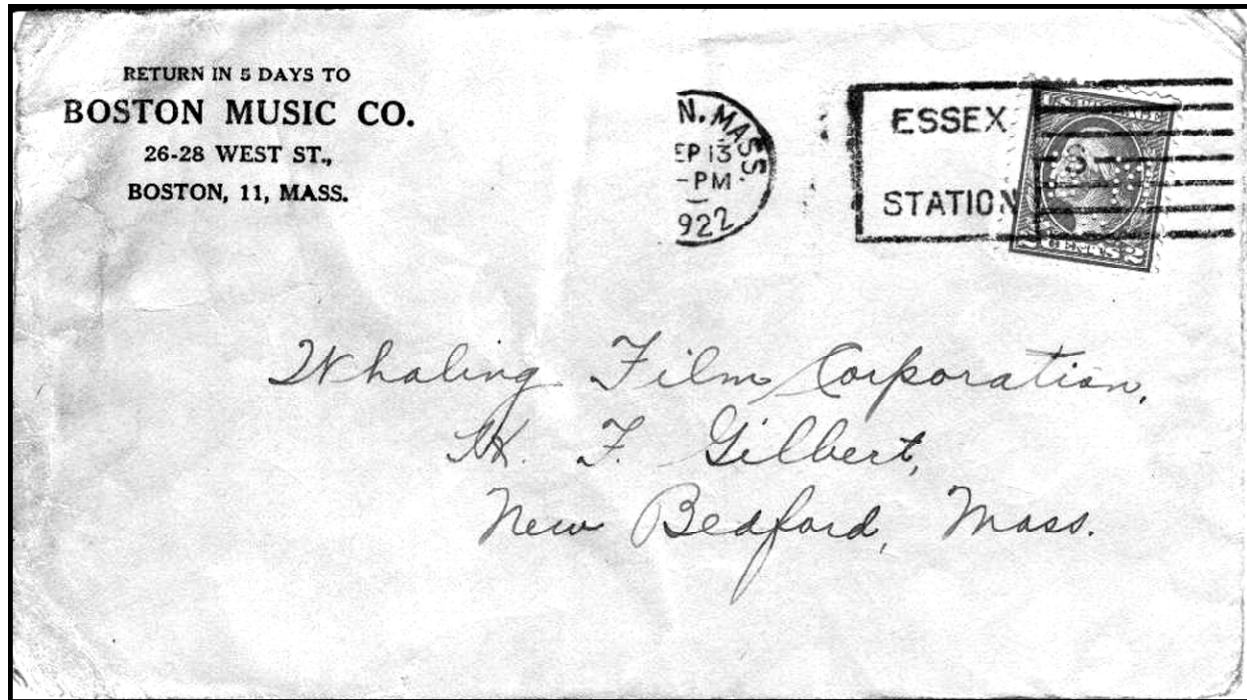 RETURN IN 5 DAYS TO
BOSTON MUSIC CO.
26-28 WEST ST.,
BOSTON, 11, MASS.
N. MASS.
EP 13
-PM
922
ESSEX
STATION
2 CENTS 2
Whaling Film Corporation,
F. Gilbert,
New Bedford, Mass.